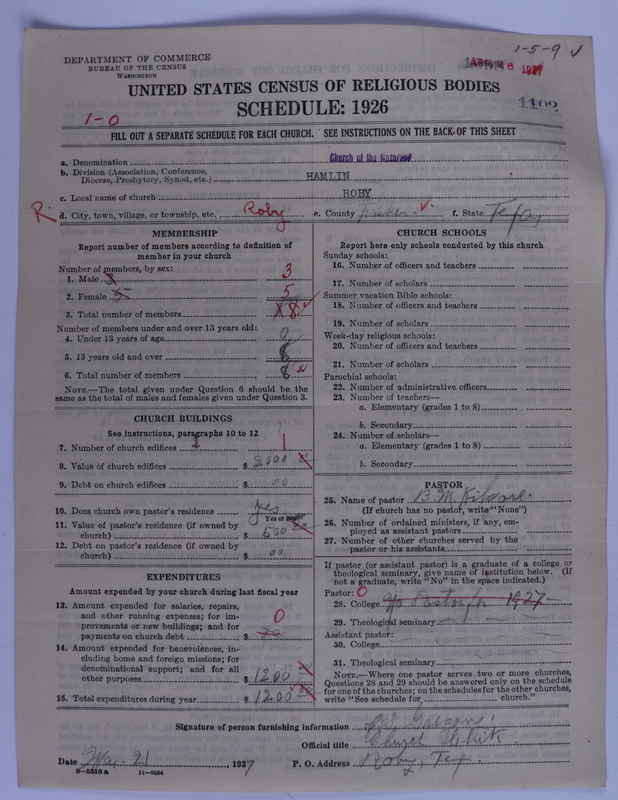 1-5-9 ✓
DEPARTMENT OF COMMERCE
BUREAU OF THE CENSUS
WASHINGTON
APR 6 1927
UNITED STATES CENSUS OF RELIGIOUS BODIES
SCHEDULE: 1926
1102
1-0
FILL OUT A SEPARATE SCHEDULE FOR EACH CHURCH. SEE INSTRUCTIONS ON THE BACK OF THIS SHEET
a. Denomination Church of the Nazarene
b. Division (Association, Conference,
Diocese, Presbytery, Synod, etc.) HAMLIN
c. Local name of church ROBY
R. d. City, town, village, or township, etc. Roby e. County f. State Texas
MEMBERSHIP
Report number of members according to definition of
member in your church
Number of members, by sex:
1. Male 3
2. Female 5
3. Total number of members 8
Number of members under and over 13 years old:
4. Under 13 years of age 0
5. 13 years old and over 8
6. Total number of members 8
NOTE.—The total given under Question 6 should be the
same as the total of males and females given under Question 3.
CHURCH BUILDINGS
See instructions, paragraphs 10 to 12
7. Number of church edifices 1 1
8. Value of church edifices $ 2000
9. Debt on church edifices $ 00
10. Does church own pastor's residence yes
Yes or No
11. Value of pastor's residence (if owned by
church) $ 500
12. Debt on pastor's residence (if owned by
church) $ 00
EXPENDITURES
Amount expended by your church during last fiscal year
13. Amount expended for salaries, repairs,
and other running expenses; for im-
provements or new buildings; and for
payments on church debt $ 0
14. Amount expended for benevolences, in-
cluding home and foreign missions; for
denominational support; and for all
other purposes $ 1200
15. Total expenditures during year $ 1200
CHURCH SCHOOLS
Report here only schools conducted by this church
Sunday schools:
16. Number of officers and teachers
17. Number of scholars
Summer vacation Bible schools:
18. Number of officers and teachers
19. Number of scholars
Week-day religious schools:
20. Number of officers and teachers
21. Number of scholars
Parochial schools:
22. Number of administrative officers
23. Number of teachers—
a. Elementary (grades 1 to 8)
b. Secondary
24. Number of scholars—
a. Elementary (grades 1 to 8)
b. Secondary
PASTOR
25. Name of pastor B. M. Kilgore
(If church has no pastor, write "None")
26. Number of ordained ministers, if any, em-
ployed as assistant pastors
27. Number of other churches served by the
pastor or his assistants
If pastor (or assistant pastor) is a graduate of a college or
theological seminary, give name of institution below. (If
not a graduate, write "No" in the space indicated.)
Pastor: 0
28. College no Pastor for 1927
29. Theological seminary
Assistant pastor:
30. College
31. Theological seminary
NOTE.—Where one pastor serves two or more churches,
Questions 28 and 29 should be answered only on the schedule
for one of the churches; on the schedules for the other churches,
write "See schedule for church."
Signature of person furnishing information
Official title Church
Date Mar. 21, 1927 P. O. Address Roby, Tex.
8-5518 a 11-9054